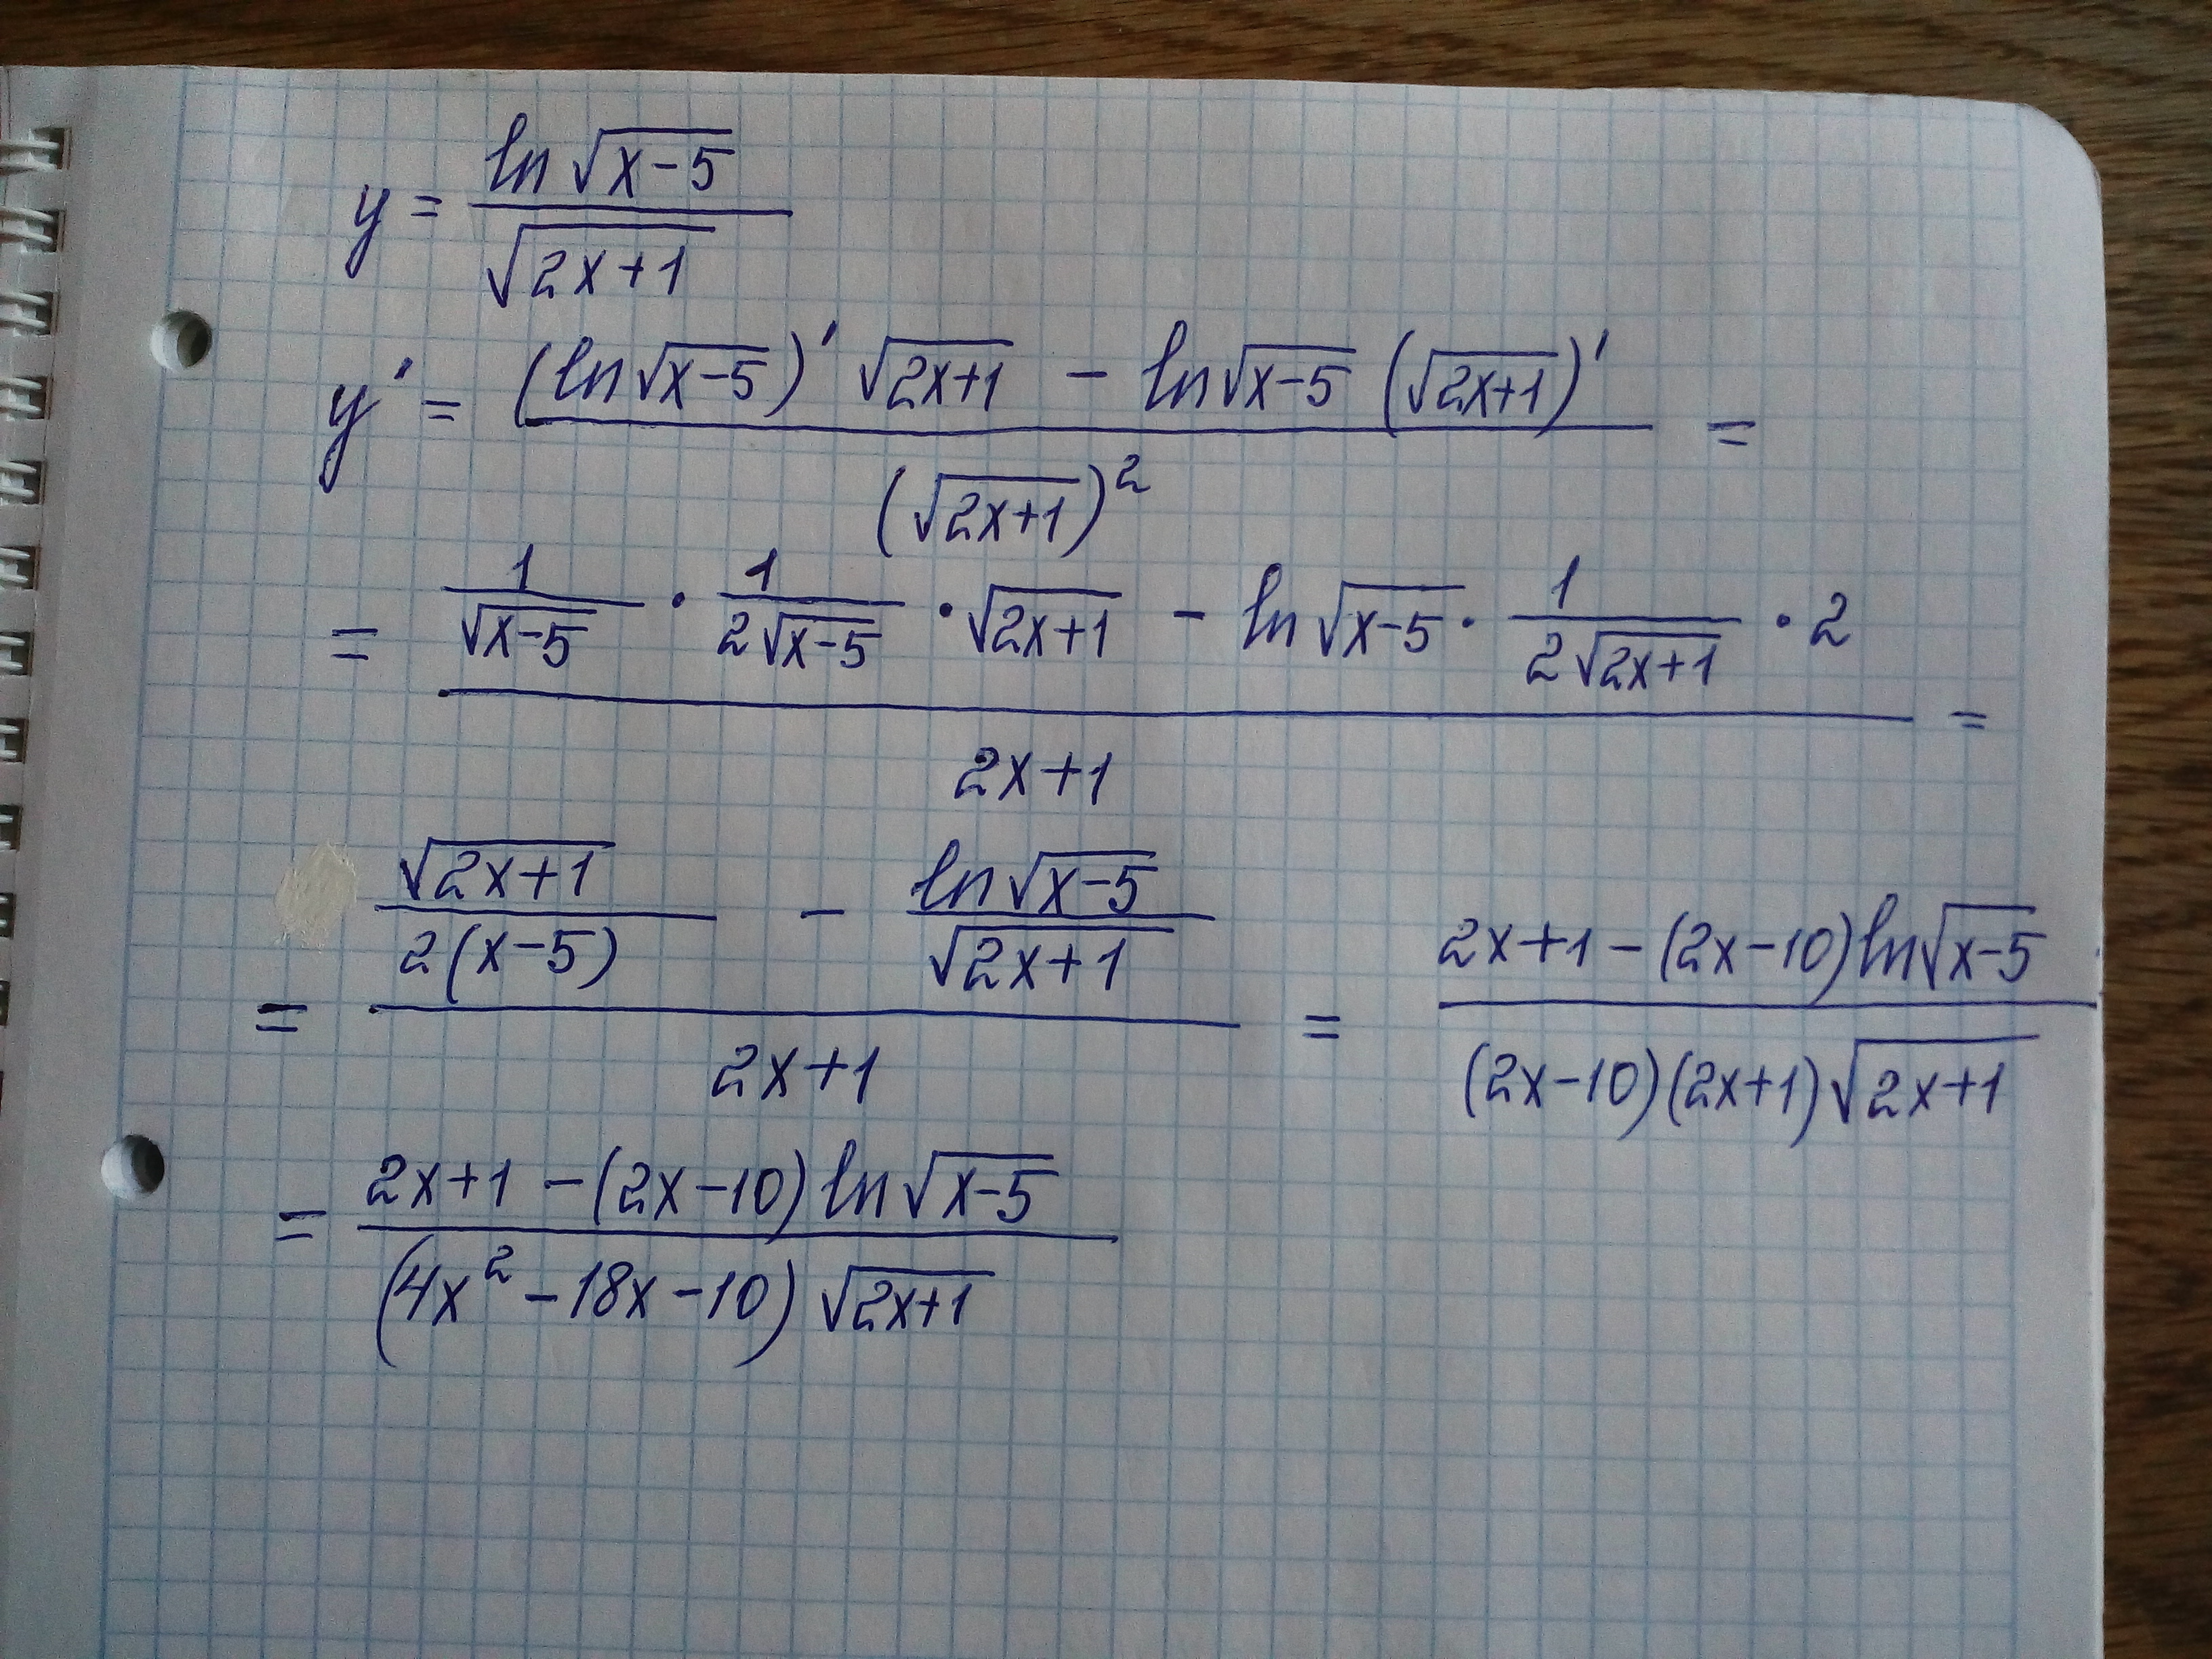 y = \frac{ln √(x-5)}{√(2x+1)}
y' = \frac{(ln √(x-5))' √(2x+1) - ln √(x-5) (√(2x+1))'}{(√(2x+1))^2} =
= \frac{\frac{1}{√(x-5)} · \frac{1}{2√(x-5)} · √(2x+1) - ln √(x-5) · \frac{1}{2√(2x+1)} · 2}{2x+1} =
= \frac{\frac{√(2x+1)}{2(x-5)} - \frac{ln √(x-5)}{√(2x+1)}}{2x+1} = \frac{2x+1-(2x-10) ln √(x-5)}{(2x-10)(2x+1)√(2x+1)}
= \frac{2x+1-(2x-10) ln √(x-5)}{(4x^2-18x-10) √(2x+1)}